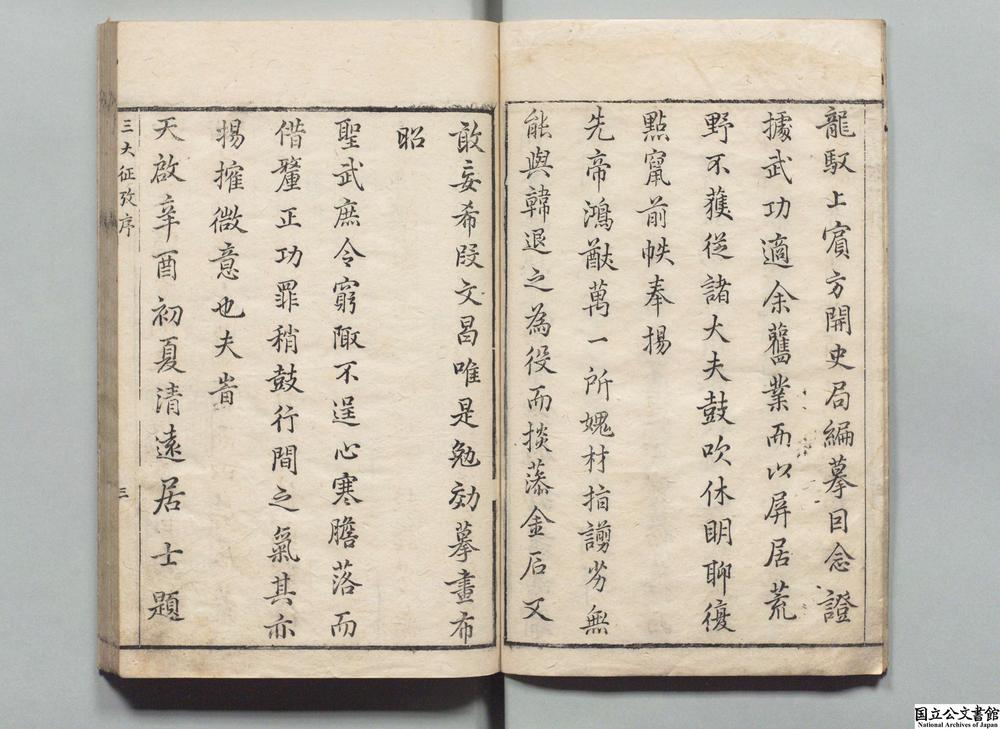 龍馭上賓方開史局編摹因念證
據武功適余舊業而以屏居荒
野不獲從諸大夫鼓吹休明聊復
點竄前帙奉揚
先帝鴻猷萬一所媿材謭劣無
能與韓退之為役而掞藻金石又
敢妄希段文昌唯是勉効摹畫布
昭
聖武庶令窮陬不逞心寒膽落而
借釐正功罪稍鼓行間之氣其亦
揚搉微意也夫旹
天啟辛酉初夏清遠居士題
三大征攷序
三
国立公文書館
National Archives of Japan